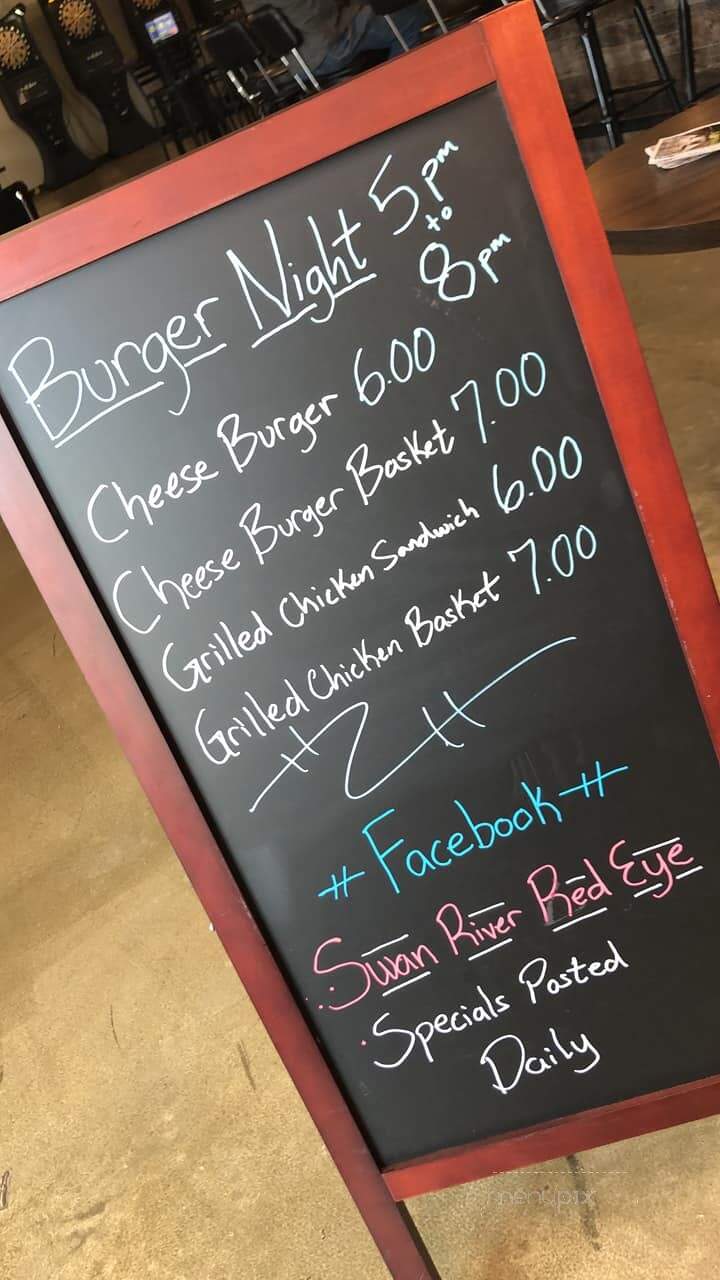 Burger Night 5pm
to
8pm
Cheese Burger 6.00
Cheese Burger Basket 7.00
Grilled Chicken Sandwich 6.00
Grilled Chicken Basket 7.00
#Facebook#
Swan River Red Eye
Specials Posted
Daily
menupix